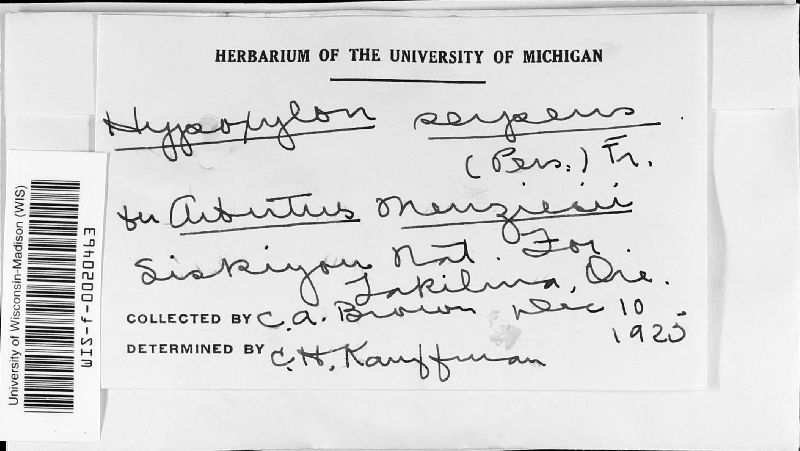 HERBARIUM OF THE UNIVERSITY OF MICHIGAN
Hypoxylon serpens
(Pers.) Fr.
on Arbutus Menziesii
Siskiyou Nat. For.
Takilma, Ore.
COLLECTED BY C. A. Brown Dec 10
1925
DETERMINED BY C. H. Kauffman
University of Wisconsin-Madison (WIS)
WIS-f-0020463